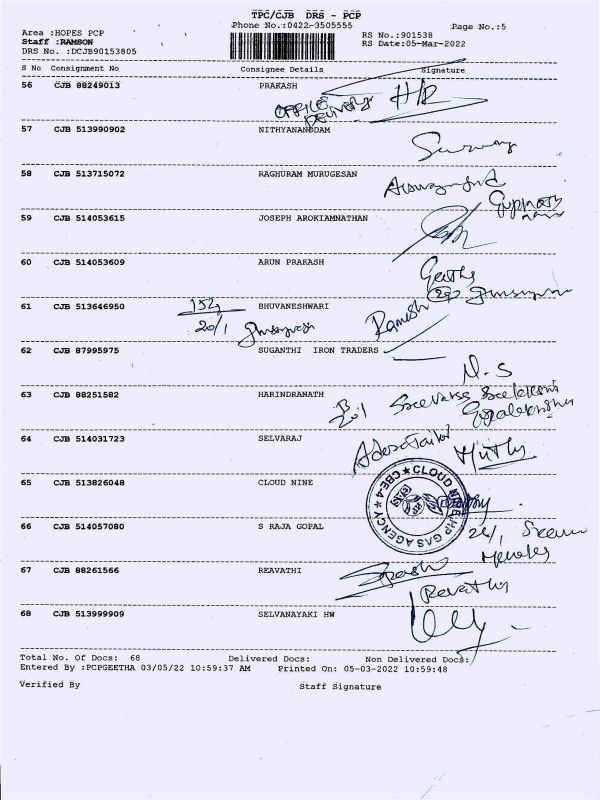 TPC/CJB DRS - PCP
Phone No.:0422-3505555
Page No.:5
Area :HOPES PCP
RS No.:901538
Staff :RAMSON
RS Date:05-Mar-2022
DRS No. :DCJB90153805
S No Consignment No Consignee Details Signature
56 CJB 88249013 PRAKASH
OFFICE DELIVERY
57 CJB 513990902 NITHYANANDDAM
58 CJB 513715072 RAGHURAM MURUGESAN
Gupinath
59 CJB 514053615 JOSEPH AROKIAMNATHAN
60 CJB 514053609 ARUN PRAKASH
Geetha
61 CJB 513646950 BHUVANESHWARI
152
20/1
Ramesh
62 CJB 87995975 SUGANTHI IRON TRADERS
N. S
63 CJB 88251582 HARINDRANATH
64 CJB 514031723 SELVARAJ
65 CJB 513826048 CLOUD NINE
CLOUD NINE HP GAS AGENCY CBE-4
66 CJB 514057080 S RAJA GOPAL
67 CJB 88261566 REAVATHI
Revathy
68 CJB 513999909 SELVANAYAKI HW
Total No. Of Docs: 68 Delivered Docs: Non Delivered Docs:
Entered By :PCPGEETHA 03/05/22 10:59:37 AM Printed On: 05-03-2022 10:59:48
Verified By Staff Signature